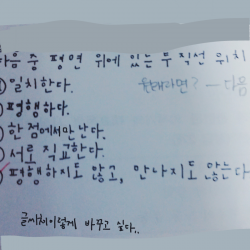 다음 중 평면 위에 있는 두 직선 위치
일치한다.
원래라면? - 다음
평행하다.
한 점에서만난다.
서로 직교한다.
평행하지도 않고, 만나지도 않는다
글씨체이렇게 바꾸고 싶다..